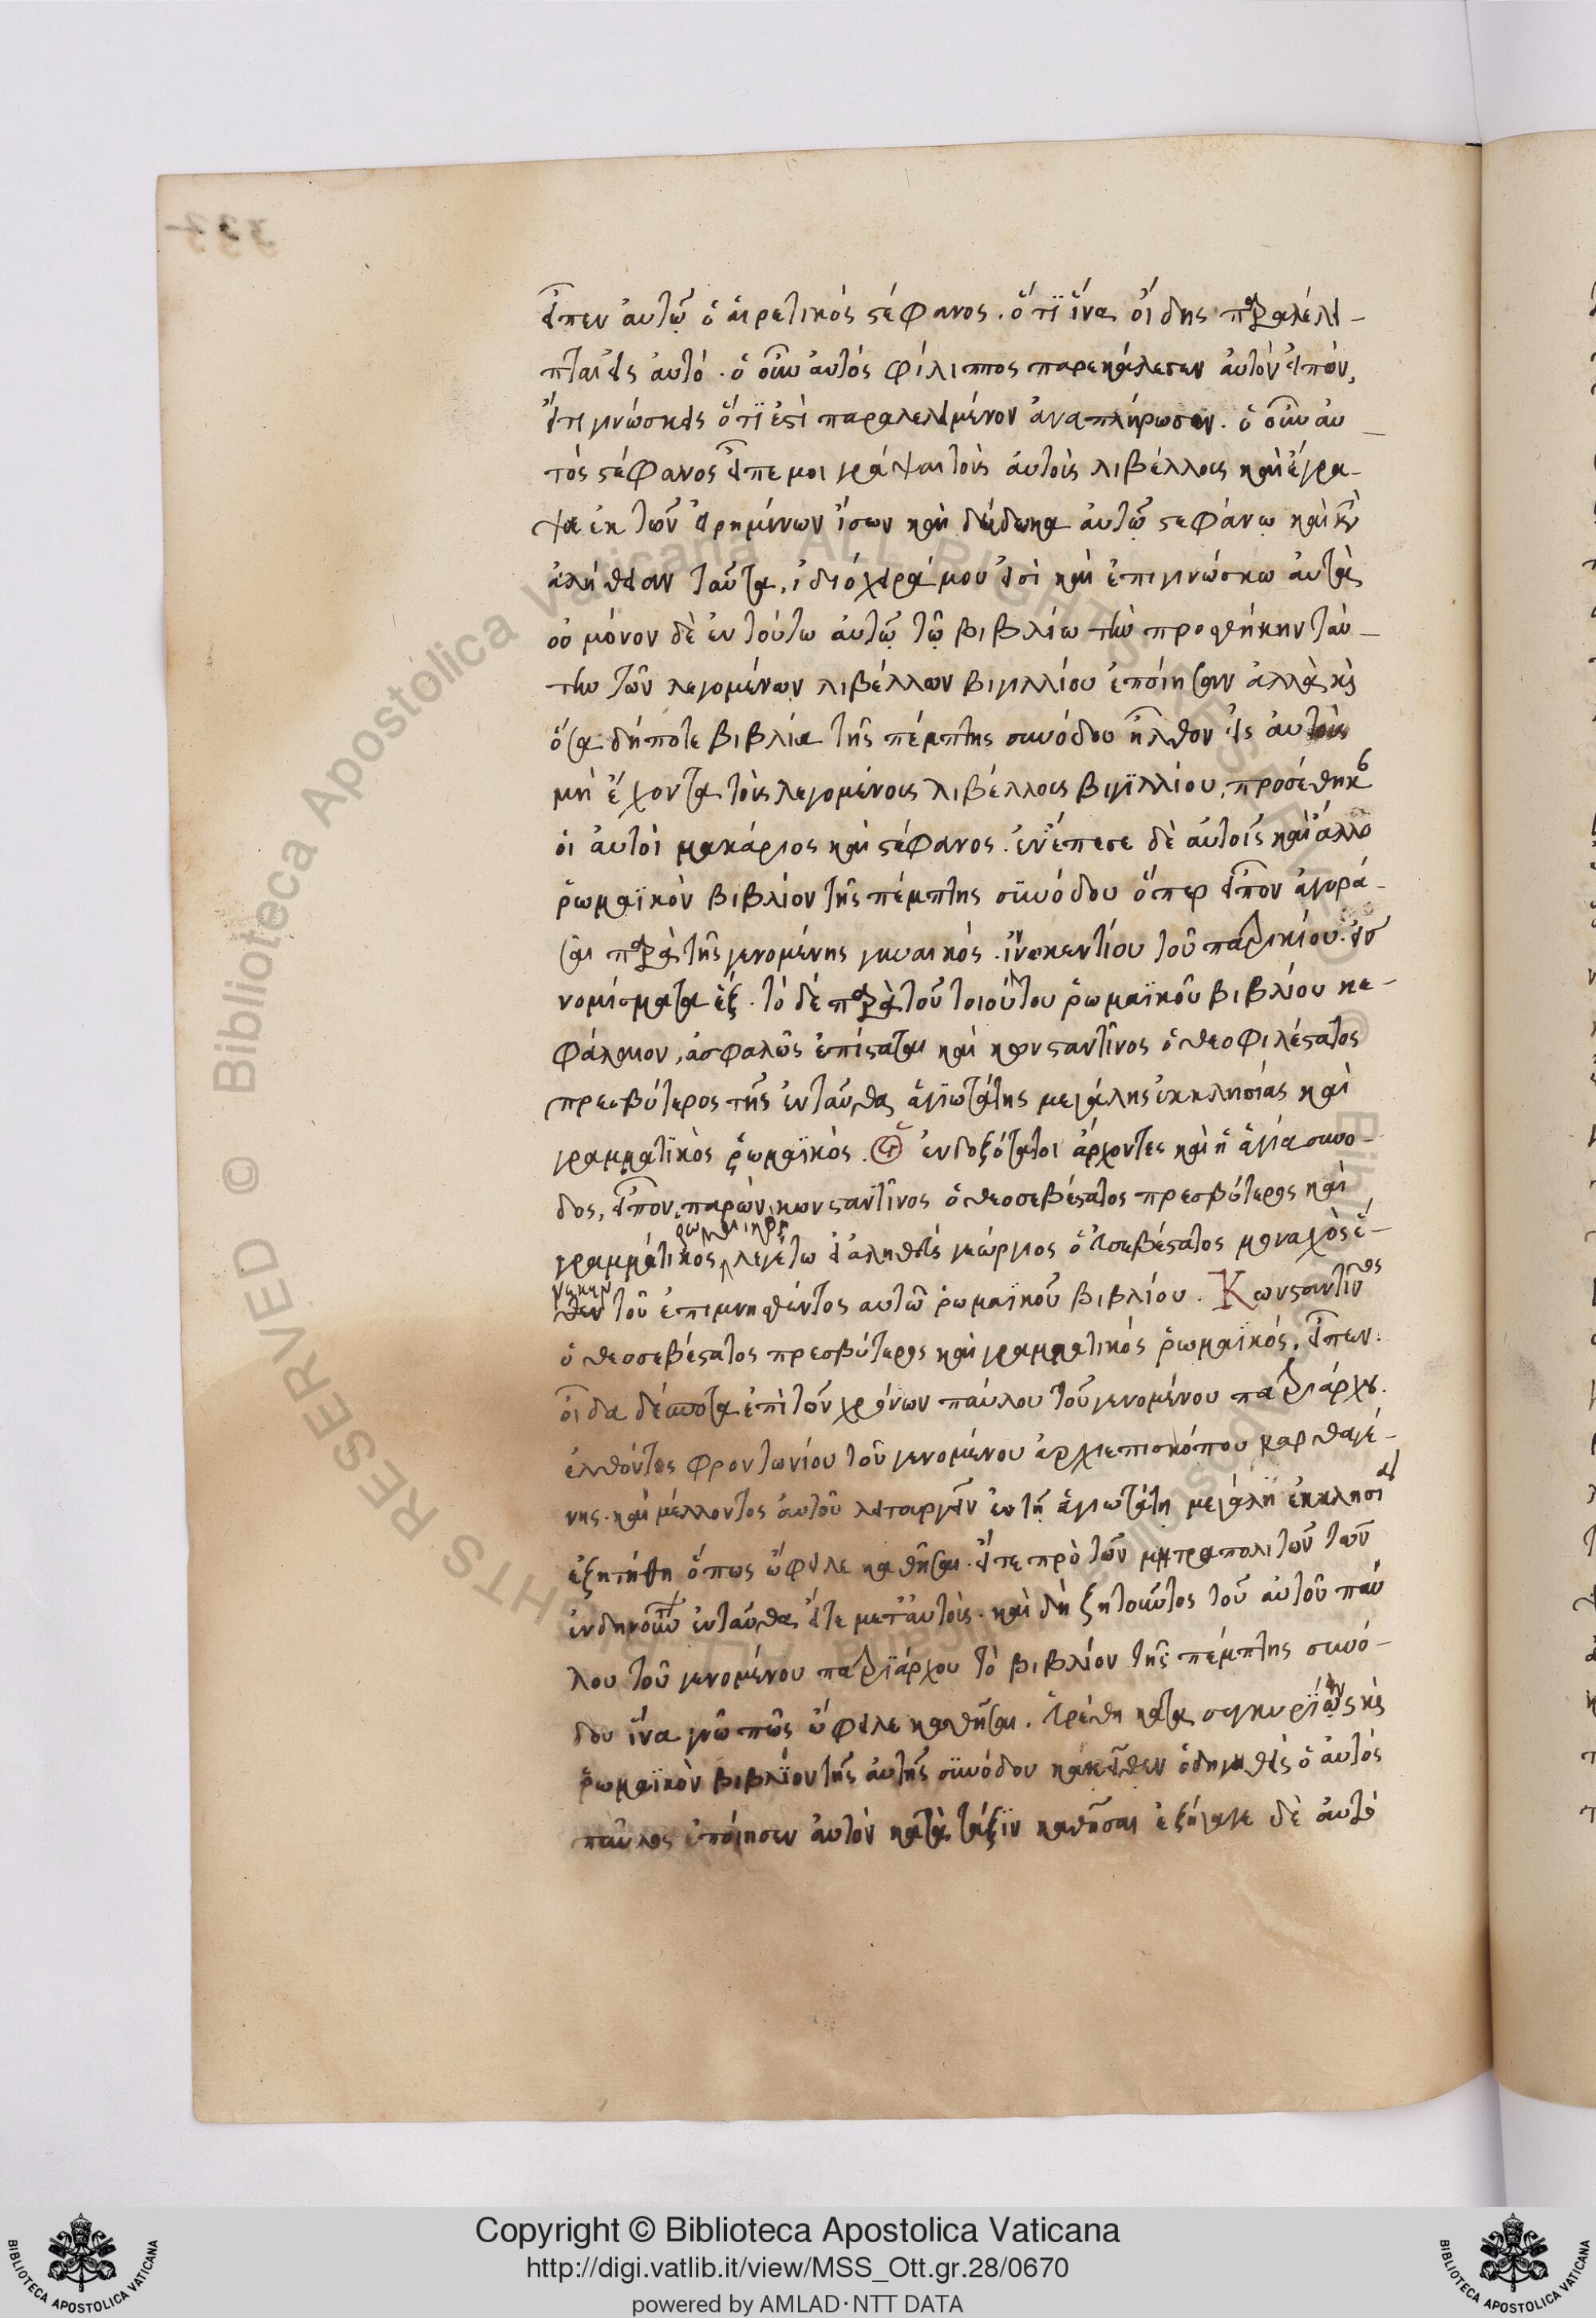 333
εἶπεν αὐτῷ ὁ αἱρετικὸς στέφανος. ὅτι ἵνα οἴδης παραλέλει-
πται εἰς αὐτό. ὁ οὖν αὐτὸς φίλιππος παρεκάλεσεν αὐτὸν εἰπὼν,
εἴτι γινώσκεις ὅτι ἐστὶ παραλελειμένον ἀναπλήρωσον. ὁ οὖν αὐ-
τὸς στέφανος εἶπε μοι γράψαι τοὺς αὐτοὺς λιβέλλους καὶ ἔγρα-
ψα ἐκ τῶν εἰρημένων ἴσων καὶ δέδωκα αὐτῷ στεφάνῳ καὶ κατὰ
ἀλήθειαν ταῦτα, ἰδιόχειρά μου εἰσὶ καὶ ἐπιγνώσκω αὐτὰ
οὐ μόνον δὲ ἐν τούτω αὐτῷ τῷ βιβλίω τὴν προσθήκην ταύ-
την τῶν λεγομένων λιβέλλων βιγιλλίου ἐποίησαν ἀλλὰ καὶ
ὅσα δήποτε βιβλία τῆς πέμπτης συνόδου ἦλθον εἰς αὐτοὺς
μὴ ἔχοντα τοὺς λεγομένους λιβέλλους βιγιλλίου, προσέθηκαν
οἱ αὐτοὶ μακάριος καὶ στέφανος. ἐνέπεσε δὲ αὐτοῖς καὶ ἄλλο
ῥωμαϊκὸν βιβλίον τῆς πέμπτης συνόδου ὅπερ εἶπον ἀγορά-
σαι παρὰ τῆς γενομένης γυναικὸς. ἰνοκεντίου τοῦ πατρικίου. εἰσ
νομίσματα ἕξ. τὸ δὲ παρὰ τοῦ τοιούτου ῥωμαϊκοῦ βιβλίου κε-
φάλαιον, ἀσφαλῶς ἐπίσταται καὶ κωνσταντῖνος ὁ θεοφιλέστατος
πρεσβύτερος τῆς ἐνταῦθα ἁγιωτάτης μεγάλης ἐκκλησίας καὶ
γραμματικὸς ῥωμαϊκὸς. Οἱ ἐνδοξότατοι ἄρχοντες καὶ ἡ ἁγία συνο-
δος, εἶπον, παρὼν κωνσταντῖνος ὁ θεοσεβέστατος πρεσβύτερος καὶ
ῥωμαικὸς
γραμματικος λεγέτω εἰ ἀληθεῖς γεώργιος ὁ εὐσεβέστατος μοναχὸς ἕ-
νεκεν
θεν τοῦ ἐπιμνησθέντος αυτῶ ῥωμαϊκοῦ βιβλίου. Κωνσταντῖνος
ὁ θεοσεβέστατος πρεσβύτερος καὶ γραμματικὸς ῥωμαϊκός, εἶπεν.
οἶδα δέσποτα ἐπὶ τῶν χρόνων παύλου τοῦ γενομένου πατριάρχου.
ἐλθόντος φροντωνίου τοῦ γενομένου ἀρχιεπισκόπου καρθαγέ-
νης. καὶ μέλλοντος αὐτοῦ λειτουργεῖν ἐν τῇ ἁγιωτάτῃ μεγάλῃ ἐκκλησία
ἐζητήθη ὅπως ὤφειλε καθῆσαι. εἴτε πρὸ τῶν μητροπολιτῶν τῶν
ἐνδημούντων ἐνταῦθα εἴτε μετ' αὐτοὺς. καὶ δὴ ζητοῦντος τοῦ αὐτοῦ παύ
λου τοῦ γενομένου πατριάρχου τὸ βιβλίον τῆς πέμπτης συνό-
δου ἵνα γνῶ πῶς ὤφειλε καθῆσαι. εὑρέθη κατα συγκυρίαν ὡς καὶ
ῥωμαϊκὸν βιβλίον τῆς αὐτῆς συνόδου κἀκεῖθεν ὁδηγηθεὶς ὁ αὐτὸς
παῦλος ἐποίησεν αὐτὸν κατὰ τάξιν καθῆσαι ἐξήγαγε δὲ αὐτὸ
Copyright © Biblioteca Apostolica Vaticana
http://digi.vatlib.it/view/MSS_Ott.gr.28/0670
powered by AMLAD·NTT DATA
BIBLIOTECA APOSTOLICA VATICANA
BIBLIOTECA APOSTOLICA VATICANA